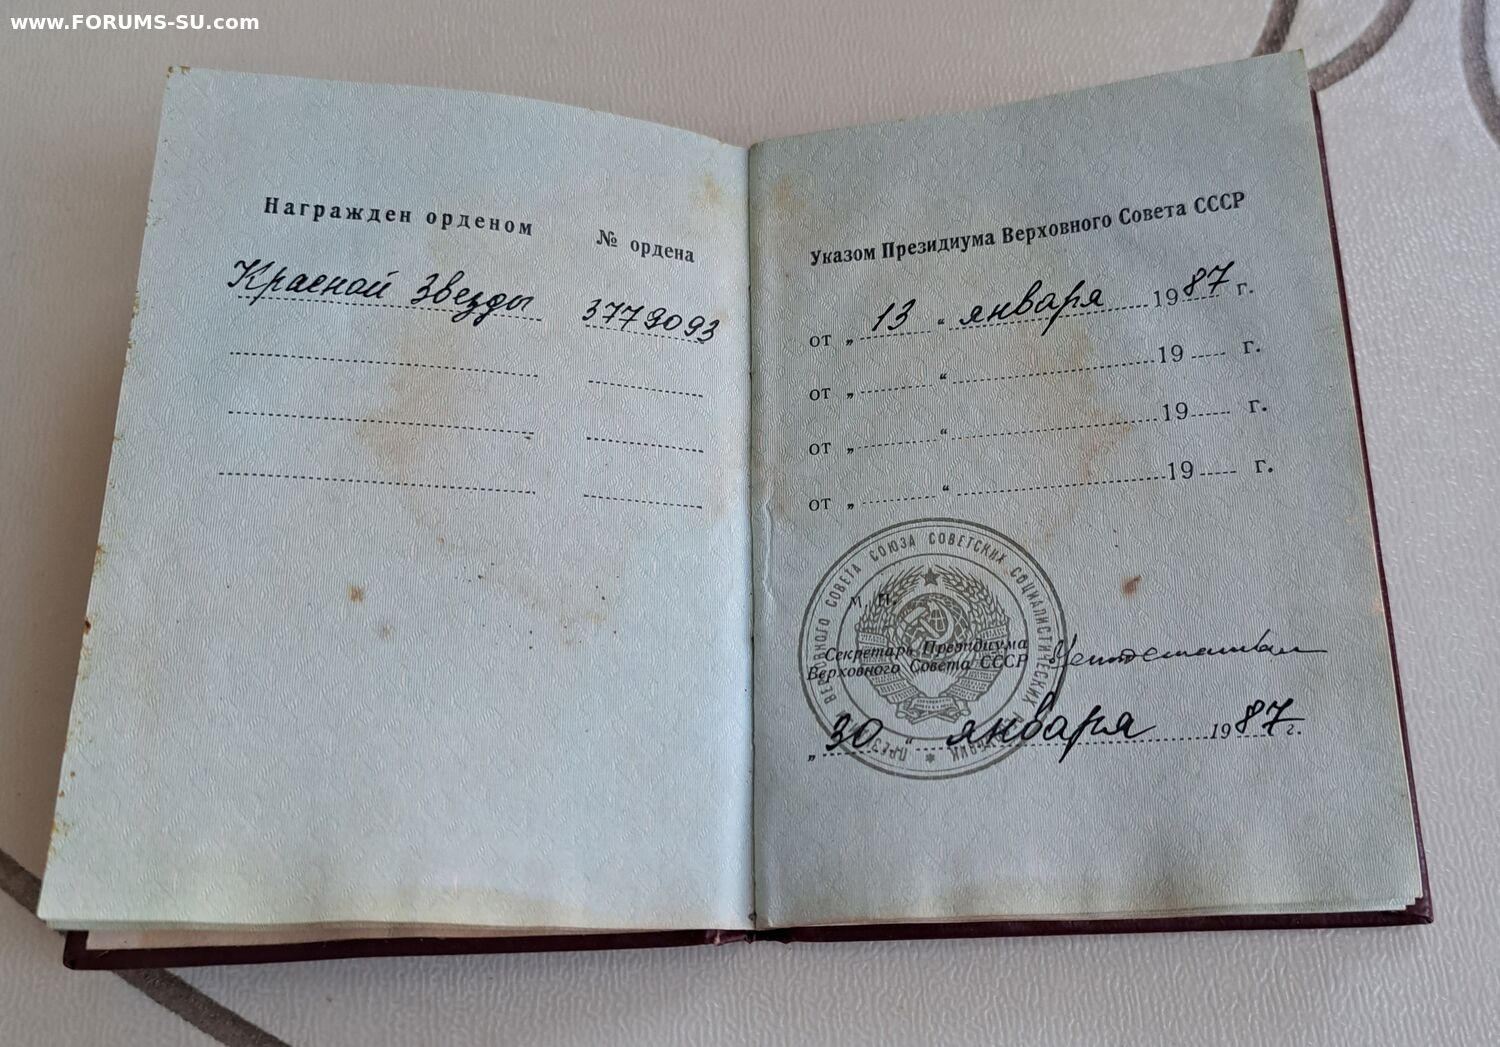 www.FORUMS-SU.com
Награжден орденом
№ ордена
Красной Звезды 3779093
Указом Президиума Верховного Совета СССР
от „ 13 “ января 1987 г.
от „ “ 19 г.
от „ “ 19 г.
от „ “ 19 г.
ПРЕЗИДИУМ ВЕРХОВНОГО СОВЕТА СОЮЗА СОВЕТСКИХ СОЦИАЛИСТИЧЕСКИХ РЕСПУБЛИК
М. П.
Секретарь Президиума
Верховного Совета СССР
„ 30 “ января 1987 г.